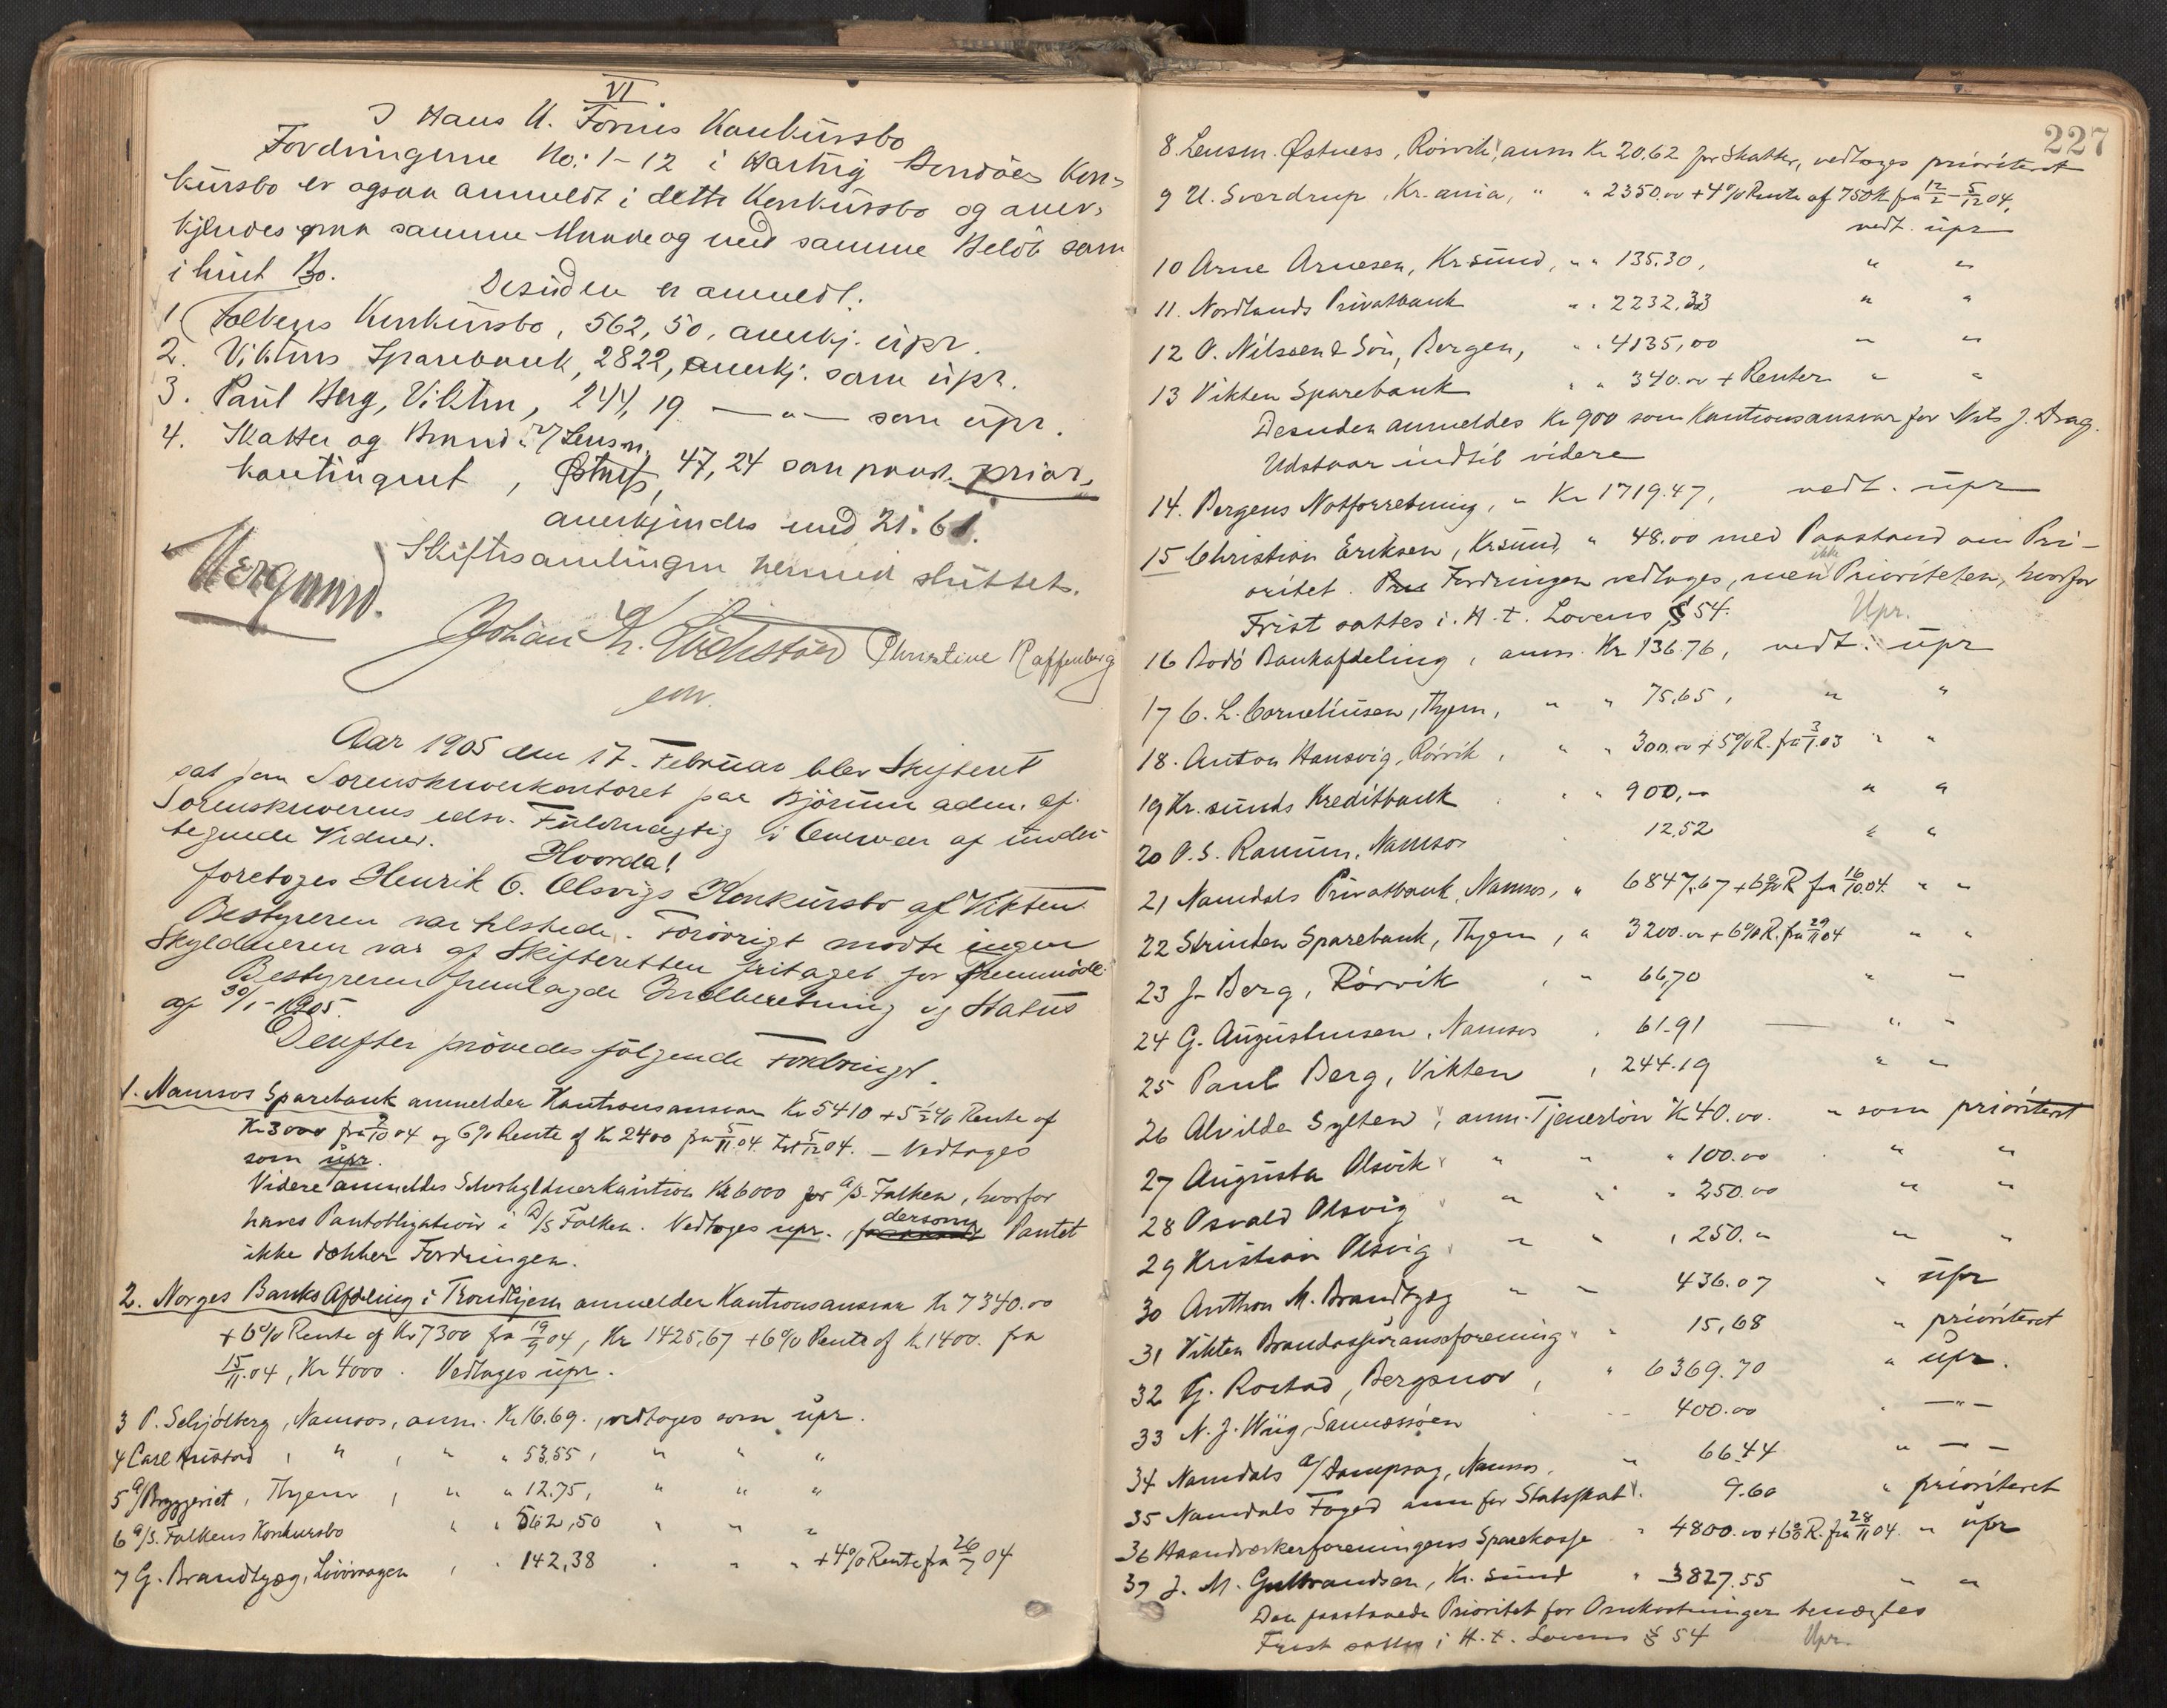 VI
I Hans U. Fornes Konkursbo
Fordringerne No: 1-12 i Hartvig Bondöes Kon-
kursbo er ogsaa anmeldt i dette Konkursbo og aner-
kjendes paa samme Maade og med samme Belöb som
i hint Bo. Desuden er anmeldt:
1 Falkens Konkursbo, 562,50, anerkj. upr.
2. Viktens Sparebank, 2822, anerkj. som upr.
3. Paul Berg, Vikten, 244,19 — " — som upr.
4. Skatter og Brand- v/ Lensm.
kontingent, Østnes, 47,24 som paast. prior.,
anerkjendes med 21.61.
Skiftesamlingen hermed sluttet.
Johan Chr. Christine Raffenberg
Aar 1905 den 17. Februar blev Skifteret
sat paa Sorenskriverkontoret paa Björum adm. af
Sorenskriverens edsv. Fuldmægtig i Overvær af under-
tegnede Vidner. Hvorda!
foretoges Henrik O. Olsvigs Konkursbo af Vikten
Bestyreren var tilstede. Forövrigt mödte ingen
Skyldneren var af Skifteretten fritaget for fremmöde.
Bestyreren fremlagde Indberetning og Status
af 30/1-1905.
Derefter prövedes fölgende Fordringer.
1. Namsos Sparebank anmelder Kautionsansvar Kr 5410 + 5½ % Rente af
Kr 3000 fra 7/10 04 og 6% Rente af Kr 2400 fra 5/11 04 til 5/12 04. — Vedtages
som upr.
Videre anmeldes Selvskyldnerkaution Kr 6000 for A/S Falken, hvorfor
haves Pantobligation i A/S Falken. Vedtages upr., dersom Pantet
ikke dækker Fordringen.
2. Norges Banks Afdeling i Trondhjem anmelder Kautionsansvar Kr 7340.00
+ 6% Rente af Kr 7300 fra 19/9 04, Kr 1425,67 + 6% Rente af Kr 1400. fra
15/11.04, Kr 4000. Vedtages upr.
3 P. Schjölberg, Namsos, anm. Kr 16.69., vedtages som upr.
4 Carl , " , " " 53,55, " " "
5 A/ Bryggeriet, Thjem, " " 12.75, " " "
6 A/S. Falkens Konkursbo " " 562,50 " " "
7 G. Brandtzæg, , " 142,38 . " " + 4% Rente fra 26/7 04
227
8. Lensm. Østness, Rörvik, anm Kr 20,62 for Skatter, vedtages prioriteret
9 U. Sverdrup, Kr.ania, " " 2350.00 + 4% Rente af 750 Kr fra 12/2 - 5/12 04,
vedt. upr
10 Arne Arnesen, Kr.sund, " " 135.30, " "
11. Nordlands Privatbank " " 2232,33 " "
12 O. Nilssen & Sön, Bergen, " " 4135,00 " "
13 Vikten Sparebank " " 340.00 + Renter " "
Desuden anmeldes Kr 900 som Kautionsansvar for Nils J. Drag.
Udstaar indtil videre
14. Bergens Notforretning, " Kr 1719.47, vedt. upr
15 Christian Eriksen, Kr.sund, " 48.00 med Paastand om Pri-
oritet. Fordringen vedtages, men ikke Prioriteten, hvorfor
Frist sattes i H. t. Lovens § 54. Upr.
16 Bodö Bankafdeling, anm. Kr 136.76, vedt. upr
17 C. L. Corneliusen, Thjem, " " 75,65, " "
18. Anton Hansvig, Rörvik, " " 300.00 + 5% R. fra 3/1.03 " "
19 Kr. sunds Kreditbank . " " 900,- " "
20 O. S. Ramum, Namsos . 12,52 " "
21 Namdals Privatbank, Namsos, " 6847,67 + 6% R fra 16/10.04. " "
22 Strinden Sparebank, Thjem, " 3200.00 + 6% R. fra 29/11 04 " "
23 J. Berg, Rörvik , " 66,70 " "
24 G. Augustinsen, Namsos , 61.91 — " "
25 Paul Berg, Vikten , 244.19 " "
26 Alvilde Sylten, anm. Tjenerlön Kr 40.00. " som prioriteret
27 Augusta Olsvik " " " 100.00 . " "
28 Osvald Olsvig " " " 250.00 " "
29 Kristian Olsvig " " " 250. " " "
30 Anthon M. Brandtzæg " " 436.07 " upr
31 Vikten Brandassuranseforening " 15,68 " prioriteret
32 G. Rostad, Bergsnov, " 6369.70 " upr.
33 N. J. Wiig, Sannessöen . 400.00 . — " —
34 Namdals A/ Dampsag, Namsos, " 66.44 " — —
35 Namdals Foged anm for Statsskat . 9.60 " prioriteret
36 Haandværkerforeningens Sparekasse " 4800.00 + 6% R. fra 28/11 04. " upr
37 J. M. Gulbrandsen, Kr. sund " 3827.55 " "
Den paastaaede Prioritet for Omkostninger benægtes
Frist sattes i H. t. Lovens § 54 Upr.